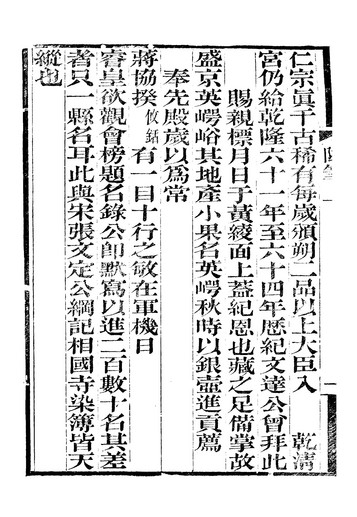 仁宗眞千古稀有每歲頒朔二品以上大臣入 乾淸
宮仍給乾隆六十一年至六十四年厯紀文達公曾拜此
賜親標月日于黃綾面上蓋紀恩也藏之足備掌故
盛京英崿峪其地產小果名英崿秋時以銀壺進貢薦
奉先殿歲以爲常
蔣協揆攸銛有一目十行之敏在軍機日
睿皇欲觀會榜題名錄公卽默寫以進二百數十名其差
者只一縣名耳此與宋張文定公綱記相國寺染簿皆天
縱也
一